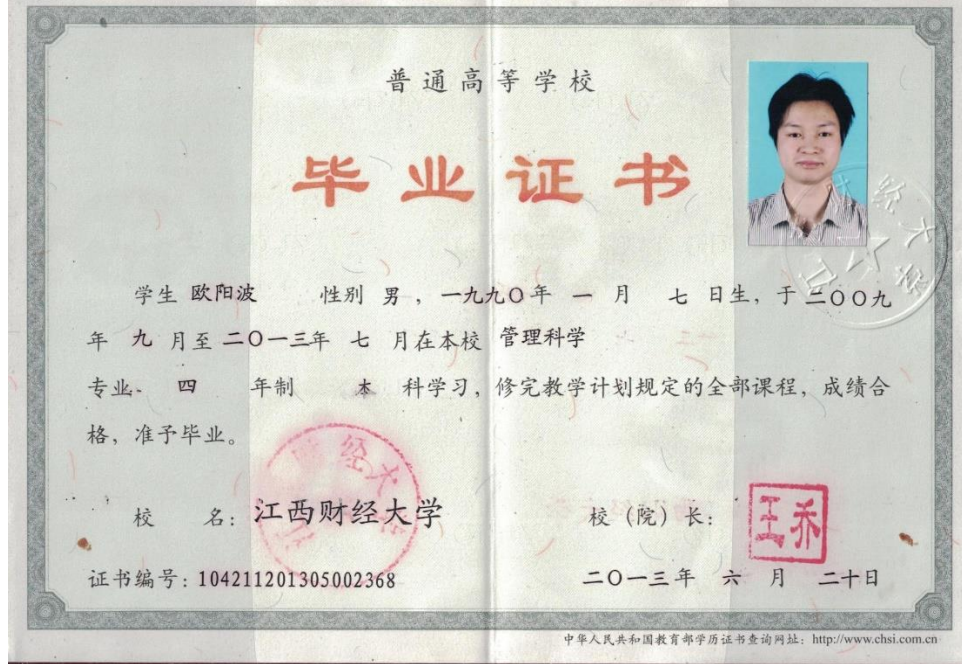 普通高等学校
毕业证书
学生 欧阳波 性别 男 ，一九九〇年 一 月 七 日生，于二〇〇九
年 九 月至二〇一三年 七 月在本校 管理科学
专业 四 年制 本 科学习，修完教学计划规定的全部课程，成绩合
格，准予毕业。
校 名：江西财经大学
校（院）长：
王乔
证书编号：104211201305002368
二〇一三年 六 月 二十日
中华人民共和国教育部学历证书查询网址：http://www.chsi.com.cn